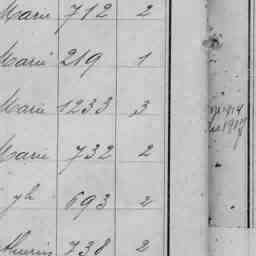 Marie 712 2
Marie 219 1
Marie 1233 3
Marie 732 2
yh 693 2
738 2